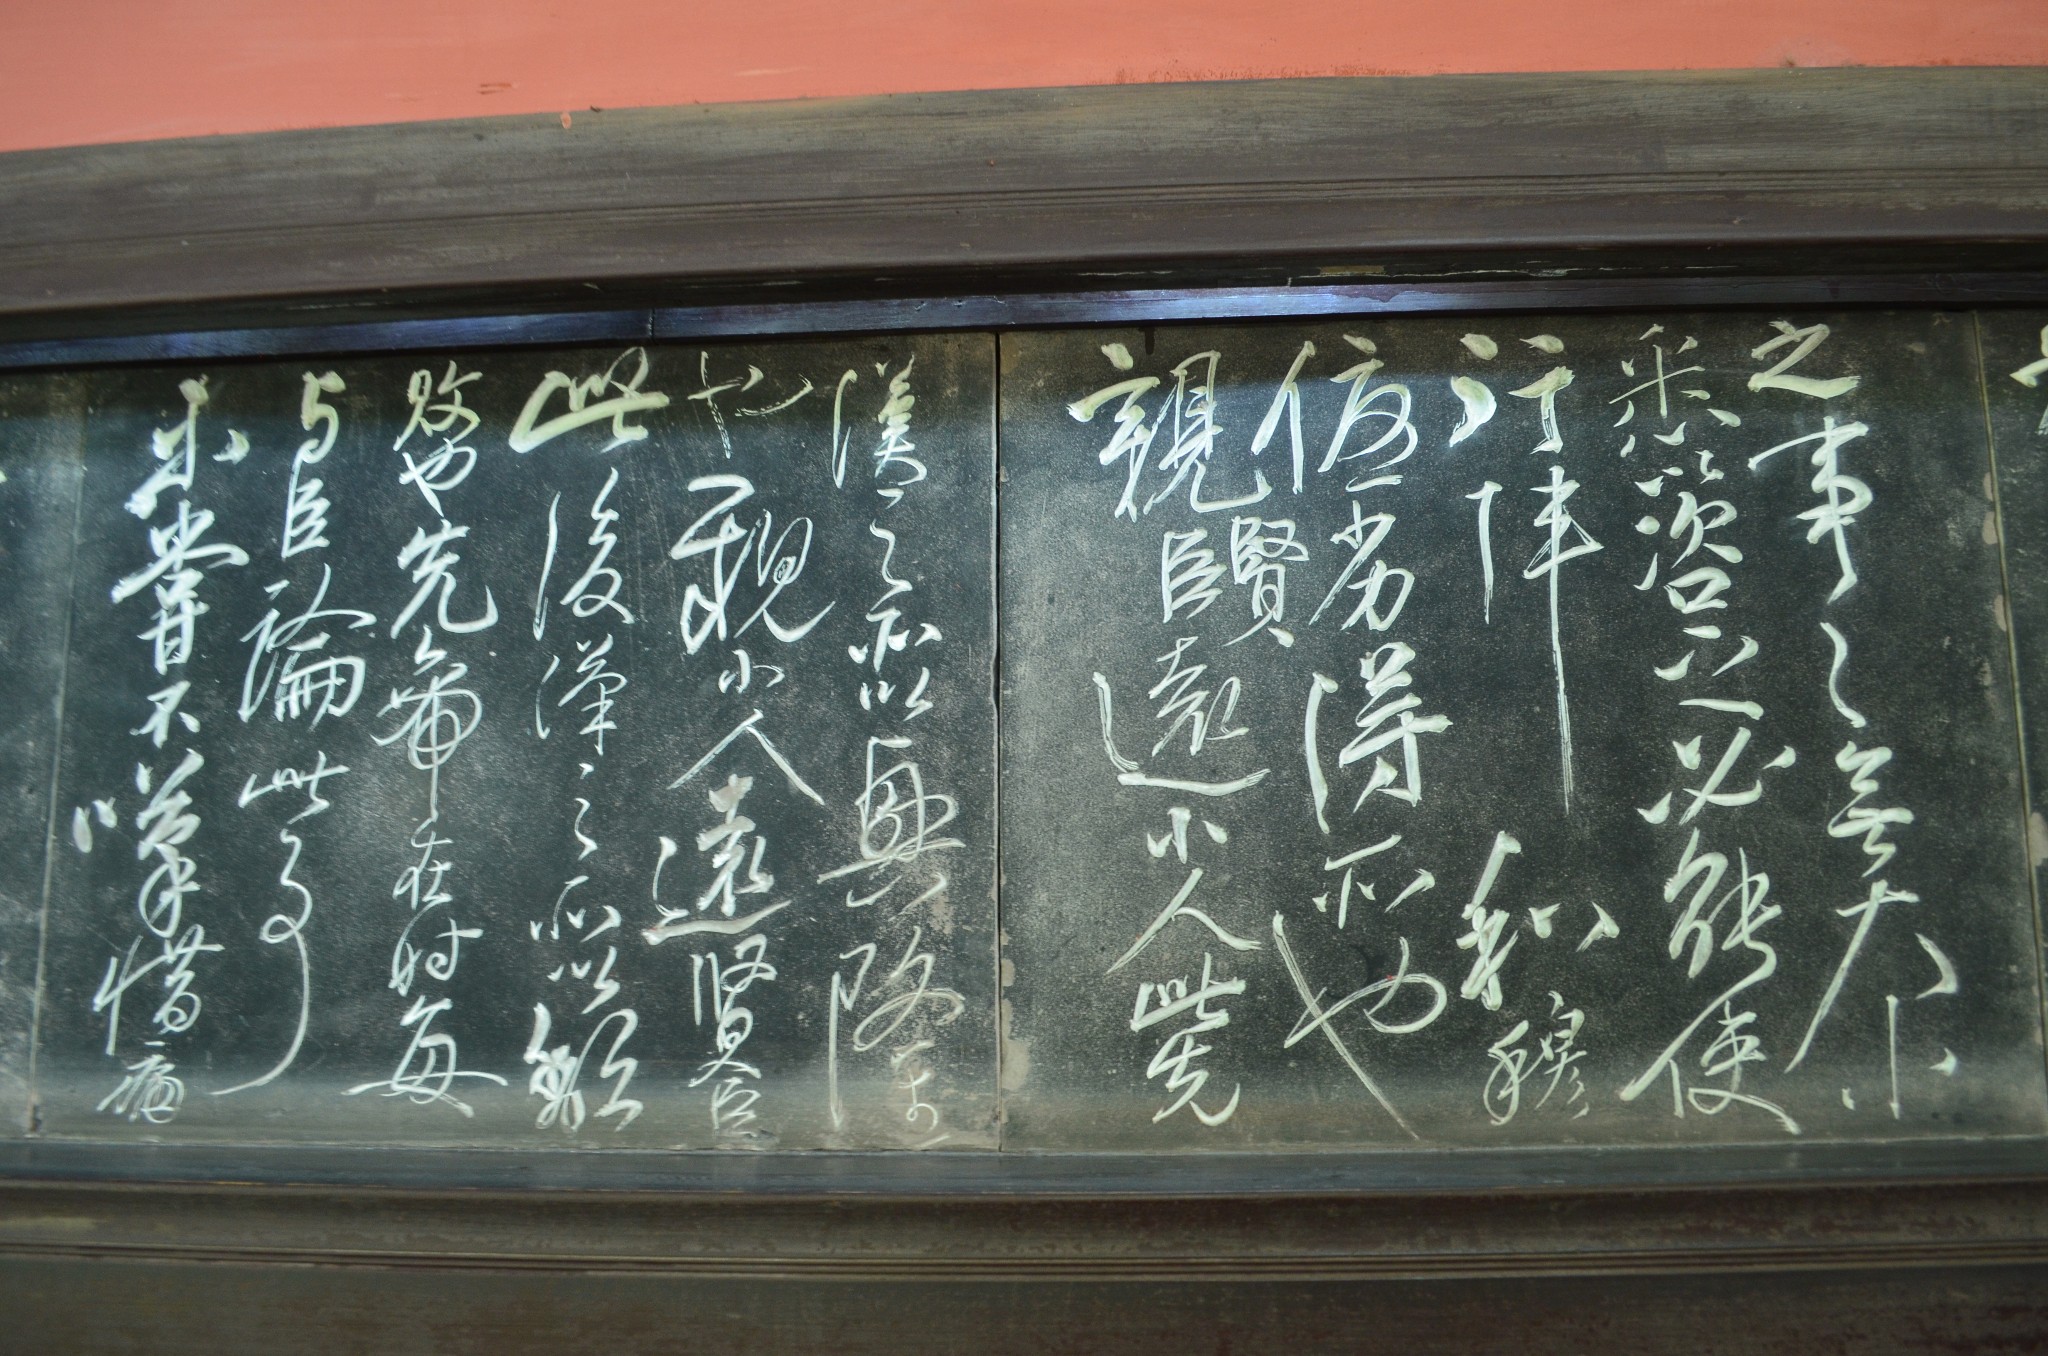 之事々無大小
悉以咨之必能使
行陣和穆
優劣得所也
親賢臣遠小人此先
漢之所以興隆
也親小人遠賢臣
此後漢之所以頹
敗也先帝在時每
与臣論此事
未嘗不嘆惜痛